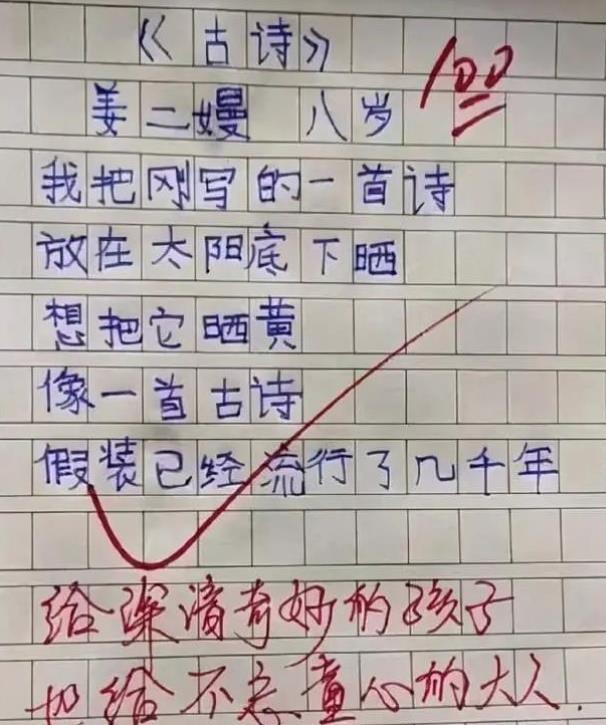 《古诗》
100
姜二嫚 八岁
我把刚写的一首诗
放在太阳底下晒
想把它晒黄
像一首古诗
假装已经流行了几千年
给深谙奇好的孩子
也给不忘童心的大人.